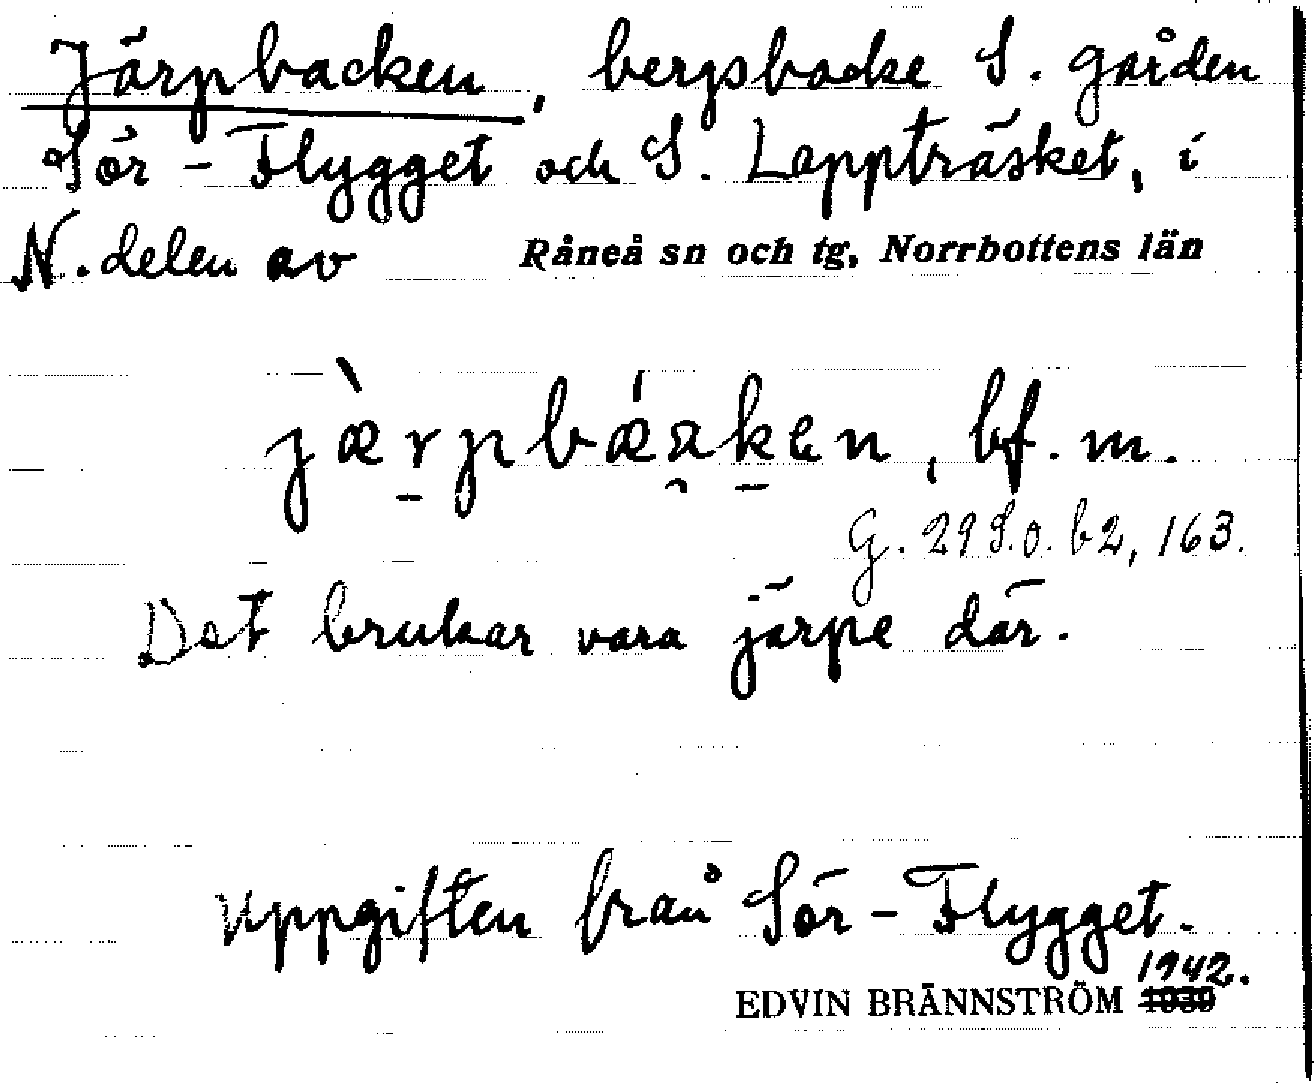 Järpbacken, bergsbacke S. gården
Sör-Flygget och S. Lappträsket, i
N. delen av Råneå sn och tg, Norrbottens län
bf. m.
G. 29 S.o. b2, 163.
Det brukar vara järpe där.
Uppgiften från Sör-Flygget.
1942.
EDVIN BRÄNNSTRÖM 1939